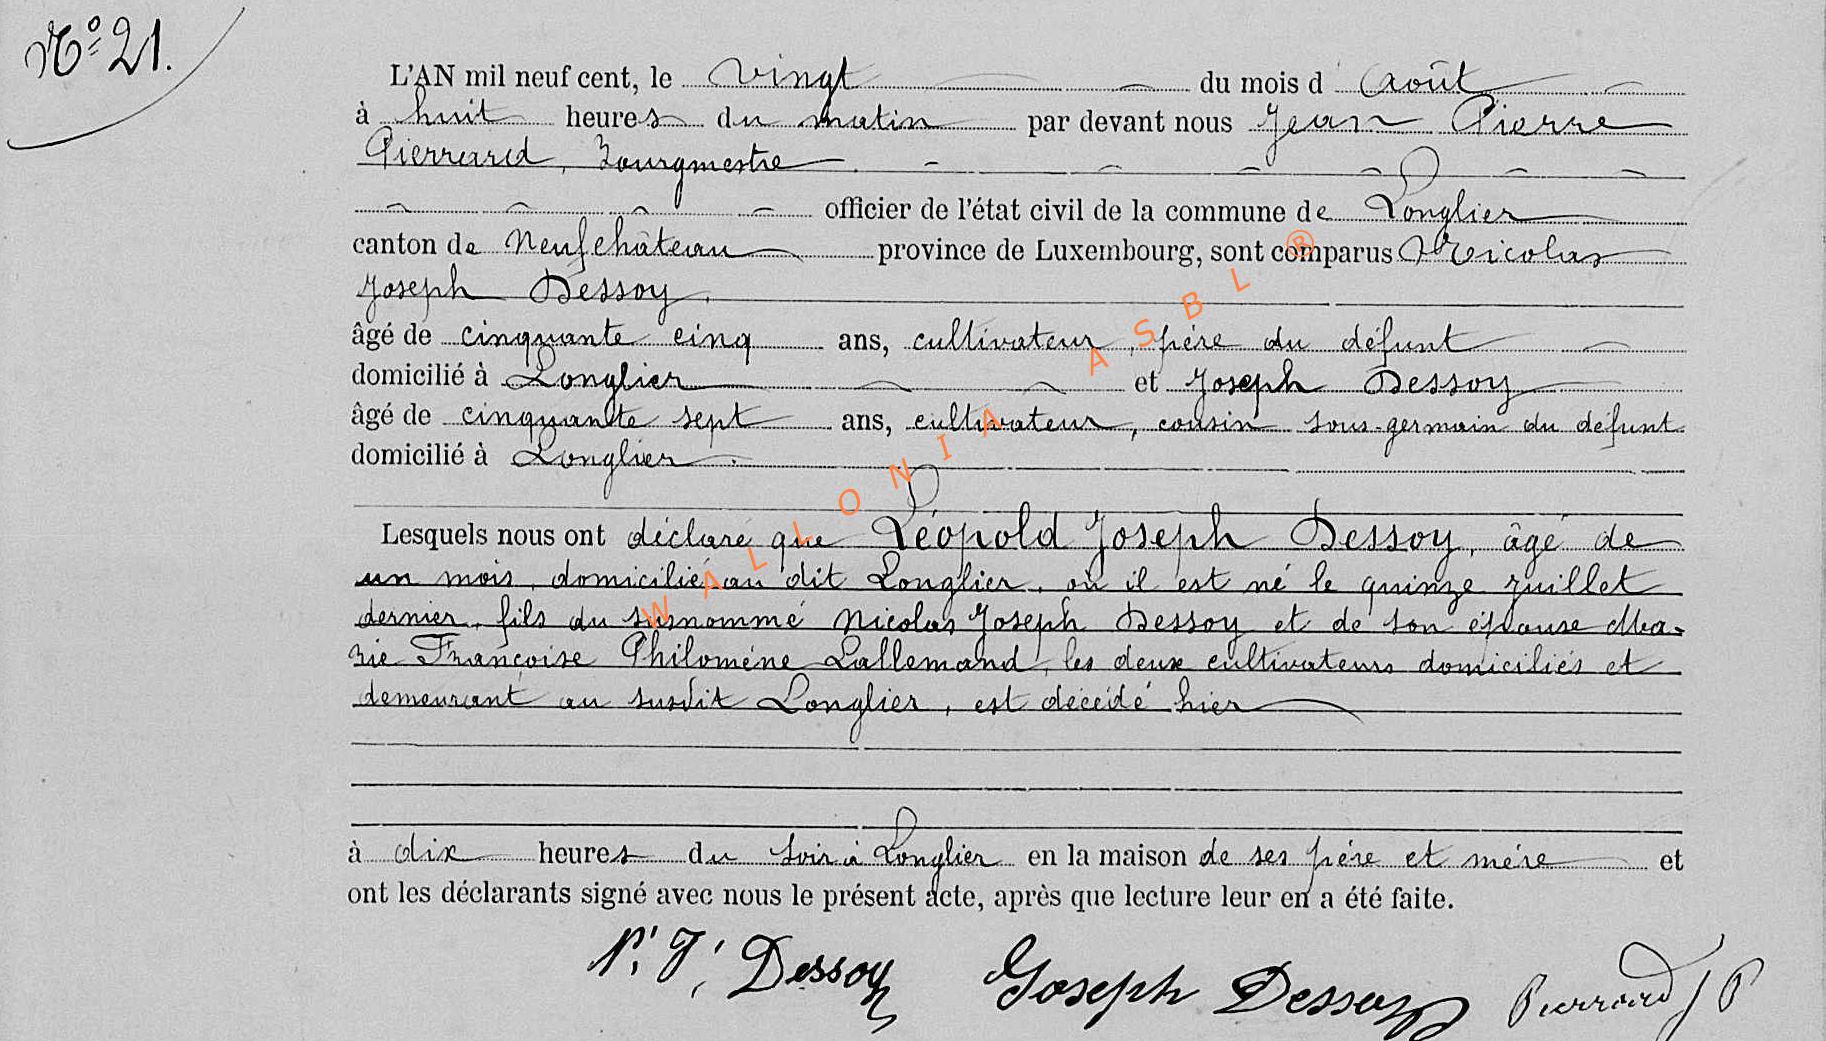 N° 21.
L'AN mil neuf cent, le vingt du mois d'Août
à huit heures du matin par devant nous Jean Pierre
Pierrard, bourgmestre
officier de l'état civil de la commune de Longlier
canton de Neufchâteau province de Luxembourg, sont comparus Nicolas
Joseph Dessoy.
âgé de cinquante cinq ans, cultivateur, père du défunt
domicilié à Longlier et Joseph Dessoy
âgé de cinquante sept ans, cultivateur, cousin sous-germain du défunt
domicilié à Longlier.
Lesquels nous ont déclaré que Léopold Joseph Dessoy, âgé de
un mois, domicilié au dit Longlier, où il est né le quinze juillet
dernier, fils du susnommé Nicolas Joseph Dessoy et de son épouse Ma-
rie Françoise Philomène Lallemand, les deux cultivateurs domiciliés et
demeurant au susdit Longlier, est décédé hier
à dix heures du soir à Longlier en la maison de ses père et mère et
ont les déclarants signé avec nous le présent acte, après que lecture leur en a été faite.
N. J. Dessoy Joseph Dessoy Pierrard J P
WALLONIA ASBL ®